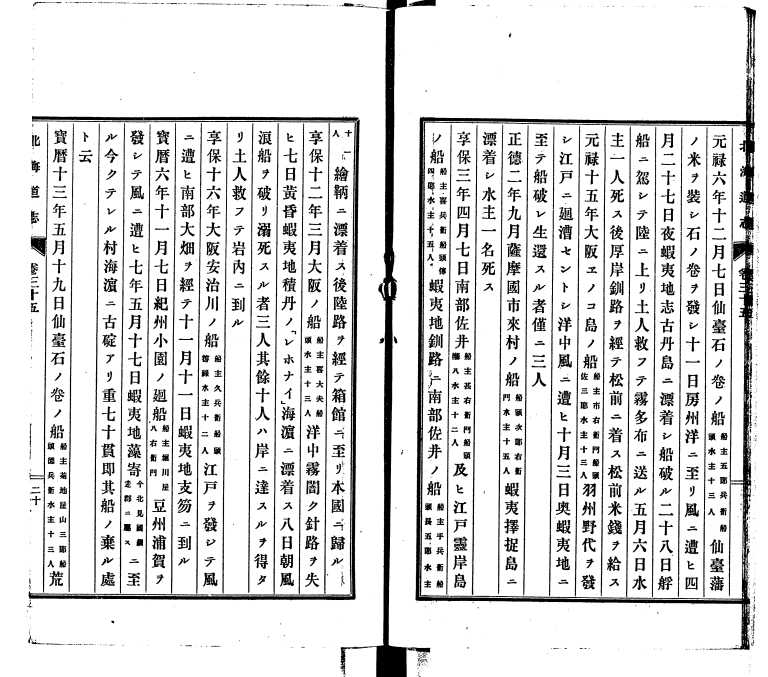 北海道志 卷三十五
元禄六年十二月七日仙臺石ノ卷ノ船船主五郎兵衞船頭水主十三人仙臺藩
ノ米ヲ裝シ石ノ卷ヲ發シ十一日房州洋ニ至リ風ニ遭ヒ四
月二十七日夜蝦夷地志古丹島ニ漂着シ船破ル二十八日艀
船ニ駕シテ陸ニ上リ土人救フテ霧多布ニ送ル五月六日水
主一人死ス後厚岸釧路ヲ經テ松前ニ着ス松前米錢ヲ給ス
元禄十五年大阪ヱノコ島ノ船船主市右衞門船頭佐三郎水主十三人羽州野代ヲ發
シ江戸ニ廻漕セントシ洋中風ニ遭ヒ十月三日奥蝦夷地ニ
至テ船破レ生還スル者僅ニ三人
正德二年九月薩摩國市來村ノ船船頭次郎右衞門水主十五人蝦夷擇捉島ニ
漂着シ水主一名死ス
享保三年四月七日南部佐井ノ船主甚右衞門船頭水主十二人及ヒ江戸靈岸島
ノ船船主喜兵衞船頭傳四郎水主十五人蝦夷地釧路ニ南部佐井ノ船船主平兵衞船頭長五郎水主
十一人繪鞆ニ漂着ス後陸路ヲ經テ箱館ニ至リ本國ニ歸ル
享保十二年三月大阪ノ船船主喜大夫船頭水主十三人洋中霧闇ク針路ヲ失
ヒ七日黃昏蝦夷地積丹ノ「レホナイ」海濵ニ漂着ス八日朝風
浪船ヲ破リ溺死スル者三人其餘十人ハ岸ニ達スルヲ得タ
リ土人救フテ岩内ニ到ル
享保十六年大阪安治川ノ船船主久兵衞船頭水主十二人江戸ヲ發シテ風
ニ遭ヒ南部大畑ヲ經テ十一月十一日蝦夷地支笏ニ到ル
寶曆六年十一月七日紀州小園ノ廻船船主堀川屋八右衞門豆州浦賀ヲ
發シテ風ニ遭ヒ七年五月十七日蝦夷地藻寄今北見國ニ屬スニ至
ル今クテレル村海濵ニ古碇アリ重七十貫即其船ノ棄ル處
ト云
寶曆十三年五月十九日仙臺石ノ卷ノ船船主菊地屋山三郎船頭德兵衞水主十三人荒
北海道志 卷三十五 二十